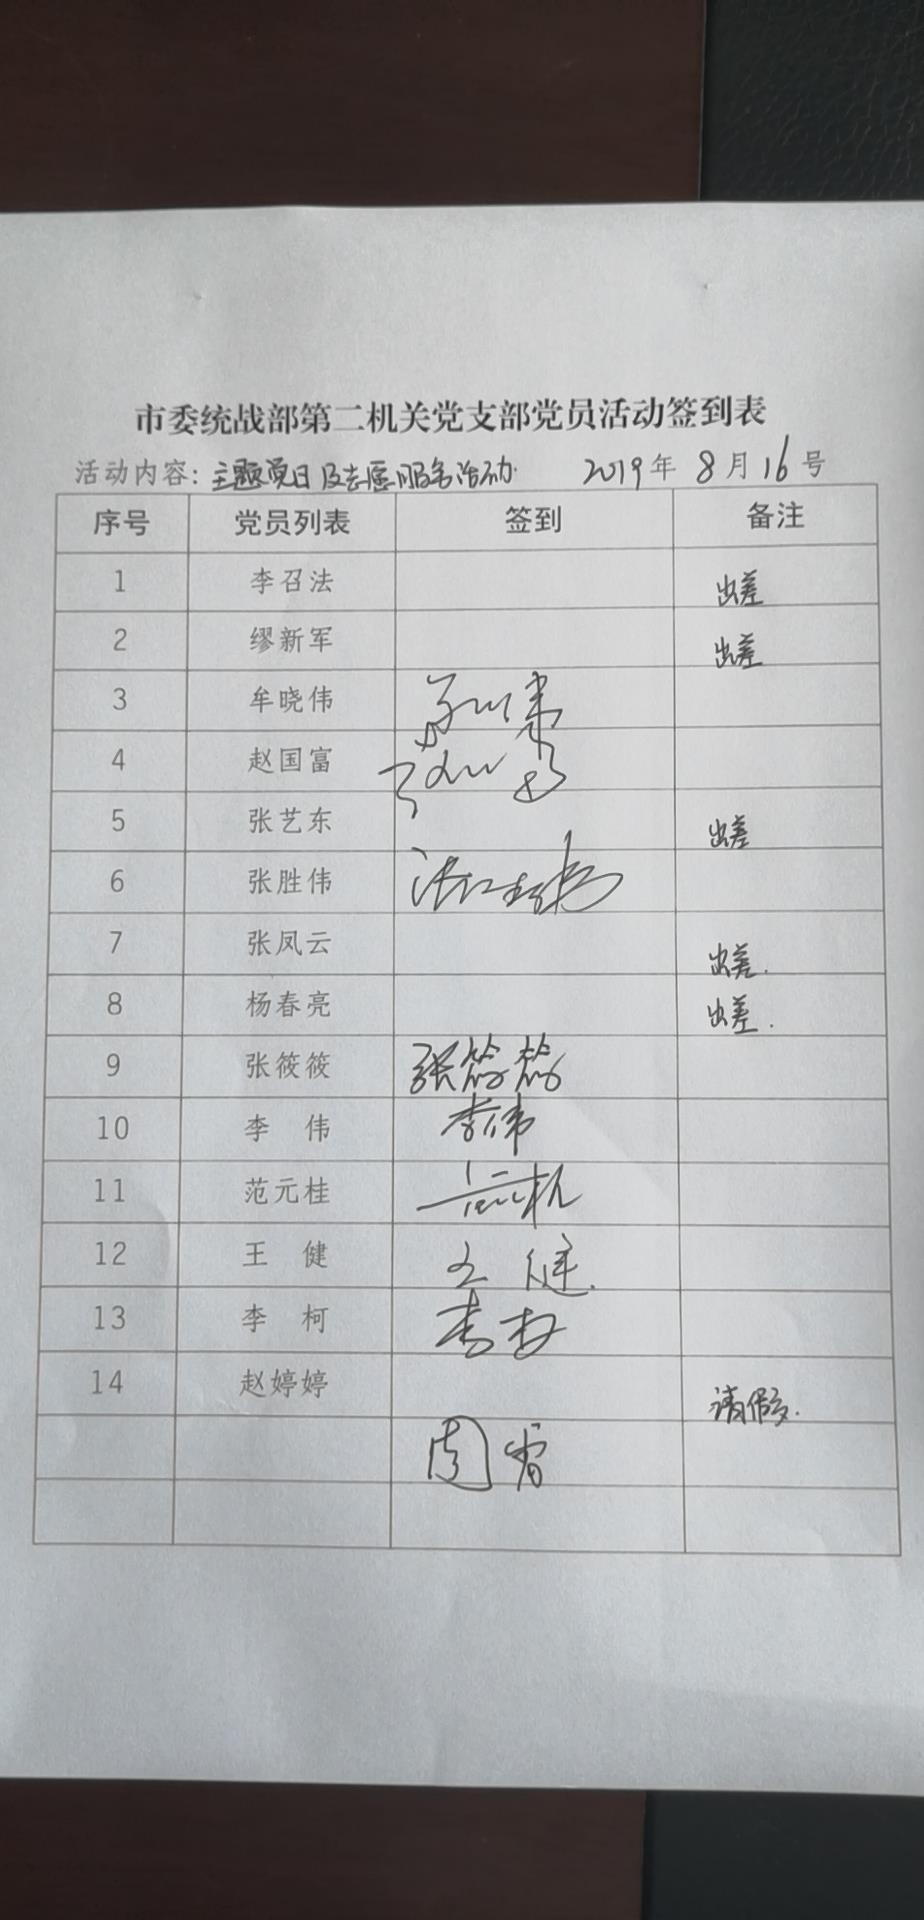 市委统战部第二机关党支部党员活动签到表
活动内容：主题党日及志愿服务活动 2019年8月16号
序号 党员列表 签到 备注
1 李召法 出差
2 缪新军 出差
3 牟晓伟
4 赵国富
5 张艺东 出差
6 张胜伟
7 张凤云 出差.
8 杨春亮 出差.
9 张筱筱 张筱筱
10 李 伟 李伟
11 范元桂
12 王 健 王健.
13 李 柯 李柯
14 赵婷婷 请假.
周